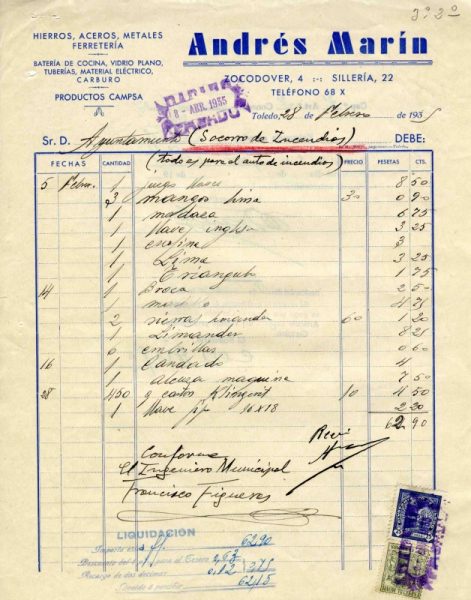 3º 2º
HIERROS, ACEROS, METALES
FERRETERÍA
BATERÍA DE COCINA, VIDRIO PLANO,
TUBERÍAS, MATERIAL ELÉCTRICO,
CARBURO
PRODUCTOS CAMPSA
Andrés Marín
ZOCODOVER, 4 SILLERÍA, 22
TELÉFONO 68 X
8 - ABR. 1935
Toledo, 28 de Febrero de 1935
Sr. D. Ayuntamiento (Socorro de Incendios) DEBE:
FECHAS CANTIDAD PRECIO PESETAS CTS.
(todo es para el auto de incendios)
5 Febro. 1 juego llaves 8 50
3 mangos lima 30 0 90
1 mordaza 6 75
1 llave inglesa 3 25
1 escofina 3
1 Lima 3 25
1 Triangulo 1 75
14 1 Broca 2 50
1 4 75
2 sierras 60 1 20
1 8 25
6 0 60
16 1 Candado 4
1 maquina 7 50
28 450 g 10 4 50
1 llave 16x18 2 20
62 90
Conforme
El Ingeniero Municipal
Francisco Figueres
Recibí
LIQUIDACION
Importe 62,90
2,63
Recargo de dos décimas 0,12 2,75
62,15